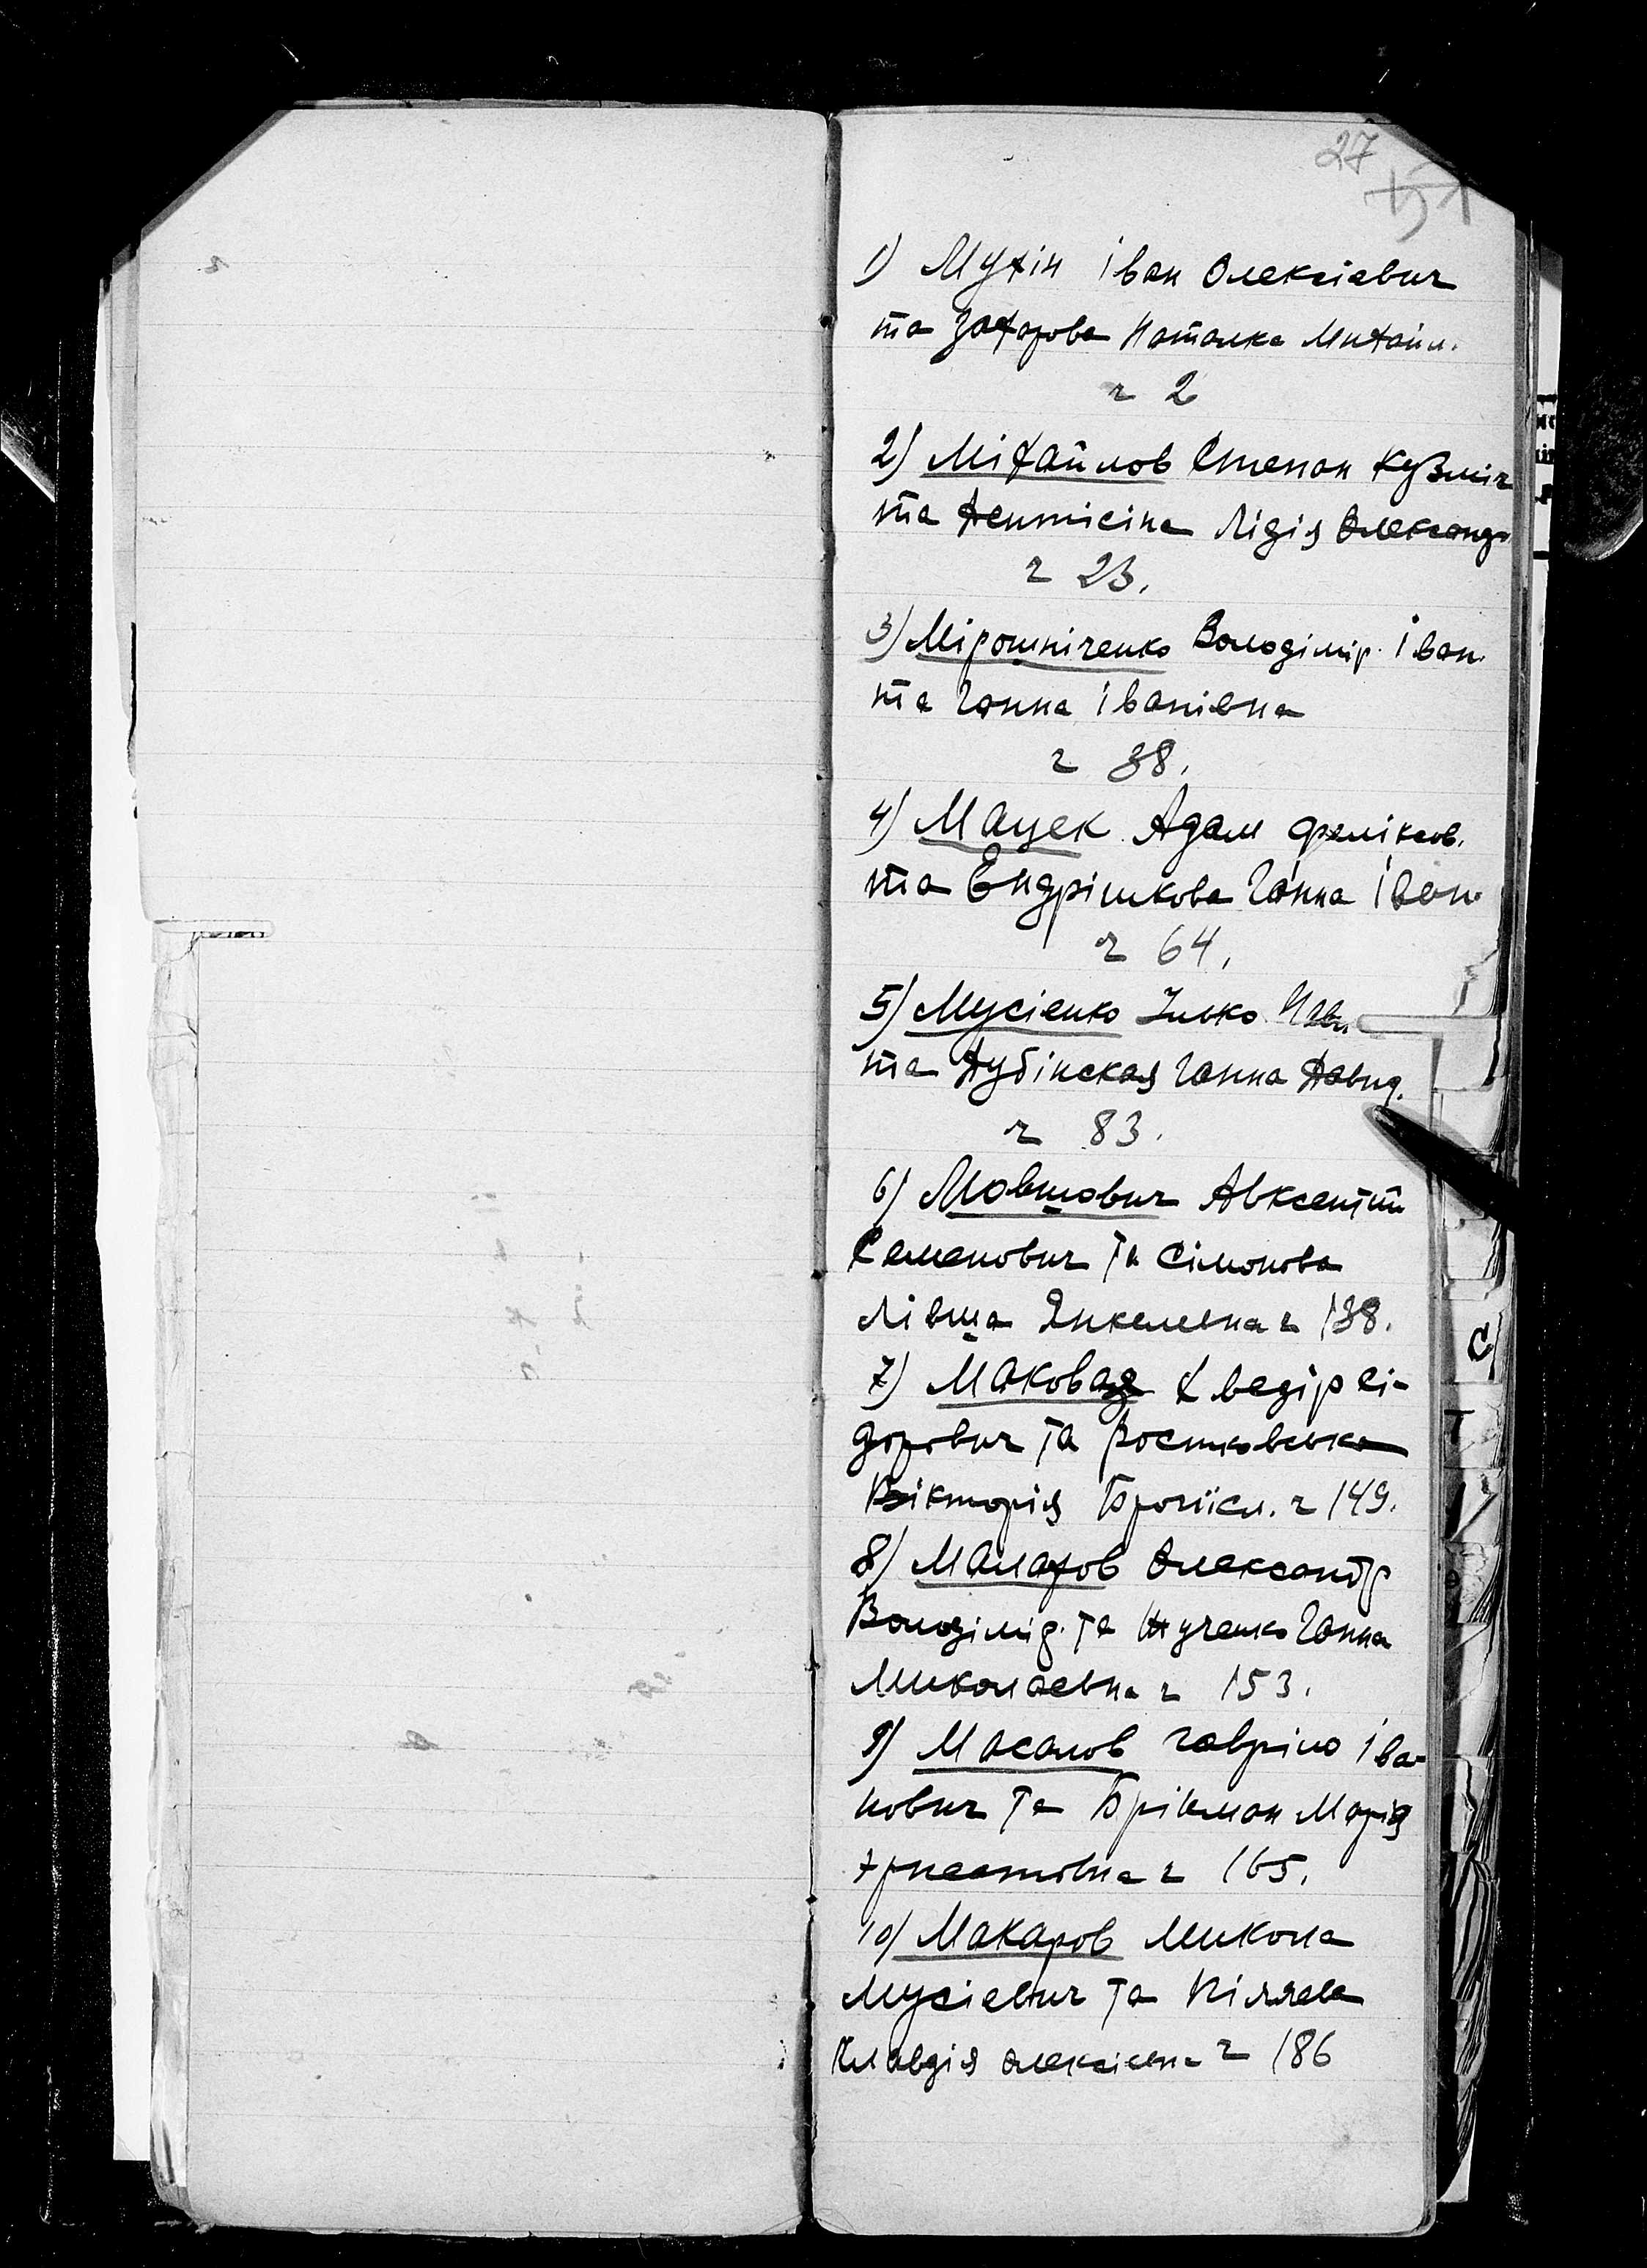 27
1) Мухін Іван Олексієвич
та Захарова Наталка Михайл.
ч 2
2) Міхайлов Степан Кузміч
та Лідія Олександ.
ч 23.
3) Мірошніченко Володімір. Іван.
та Ганна Іванівна
ч 38.
4) Мацек Адам Феліксов.
та Ендрішкова Ганна Іван.
ч 64.
5) Мусієнко Ілько
та Дубінская Ганна Давид.
ч 83.
6) Мовшович Авксентий
Семенович та Сімонова
Лівша Янкелевна ч 138.
7) Маковая Хведір Сі-
дорович та Ростковська
Вікторія Броніїсл. ч 149.
8) Малахов Олександр
Володімір. та Жученко Ганна
Миколаевна ч 153.
9) Масалов Гавріло Іва-
нович та Брікман Марія
Ернестовна ч 165.
10) Макаров Микола
Мусієвич та
Клавдія Олексієвна ч 186
С
Т